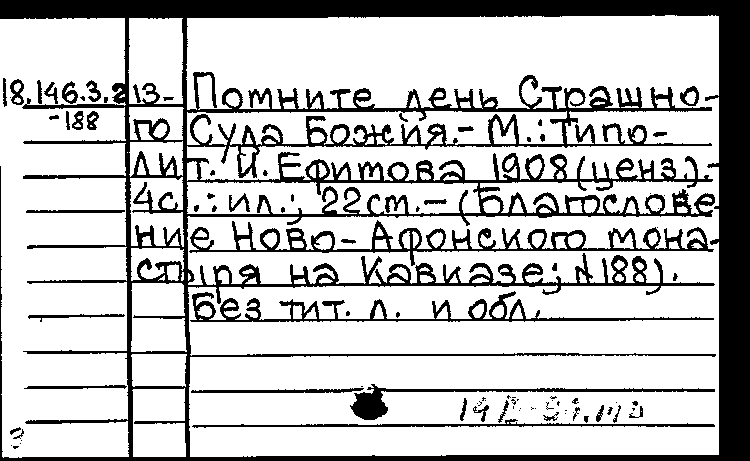 18.146.3.2 13- Помните день Страшно-
-188 го Суда Божия.- М.: Типо-
лит. И. Ефимова 1908 (ценз.).-
4с.: ил.; 22см.- (Благослове
ние Ново-Афонского мона-
стыря на Кавказе; №188).
Без тит. л. и обл.